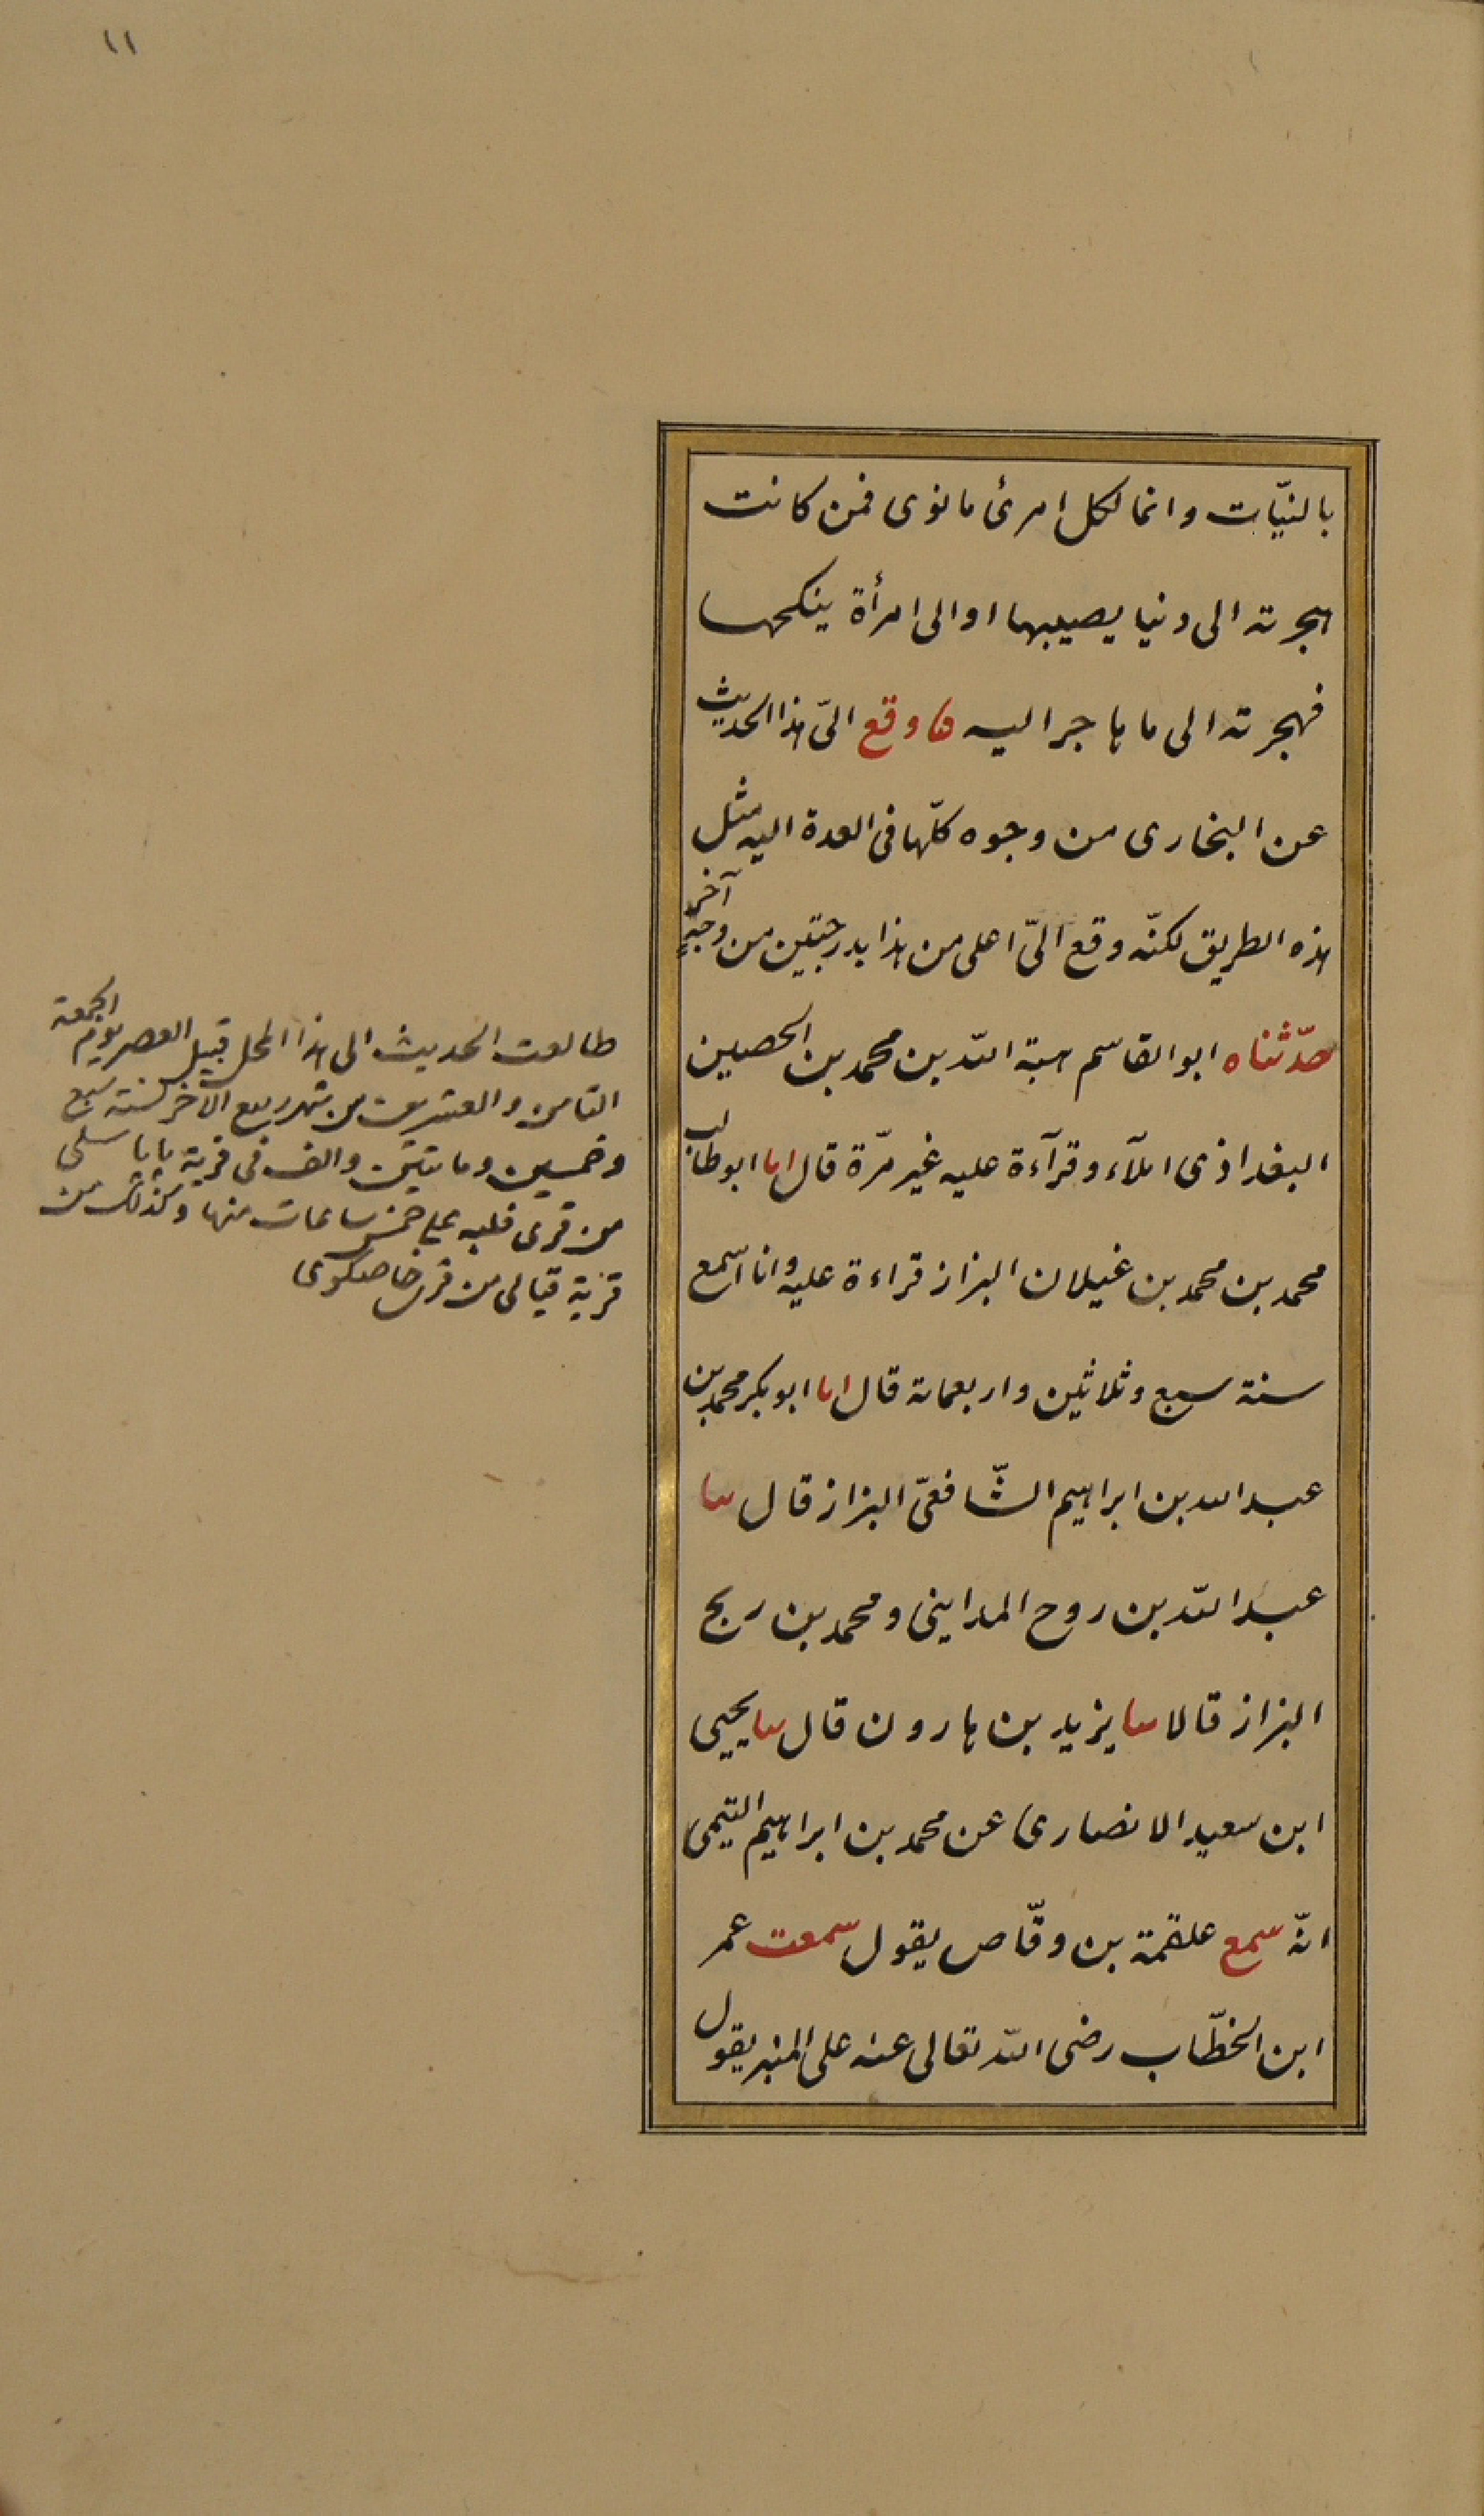 ١١
بالنيّات وانما لكل امرئ ما نوى فمن كانت
هجرته الى دنيا يصيبها او الى امرأة ينكحها
فهجرته الى ما هاجر اليه وقع الىّ هذا الحديث
عن البخارى من وجوه كلّها فى العدة اليه مثل
هذه الطريق لكنّه وقع الىّ اعلى من هذا بدرجتين من وجهٍ آخر
حدّثناه ابو القاسم هبة الله بن محمد بن الحصين
البغداذى املآء وقرآءة عليه غير مرّة قال انا ابو طالب
محمد بن محمد بن غيلان البزاز قراءة عليه وانا اسمع
سنة سبع وثلاثين واربعمائة قال انا ابو بكر محمد بن
عبد الله بن ابراهيم الشّافعىّ البزاز قال ثنا
عبد الله بن روح المداينى ومحمد بن ربح
البزاز قالا ثنا يزيد بن هارون قال ثنا يحيى
ابن سعيد الانصارى عن محمد بن ابراهيم التيمى
انّه سمع علقمة بن وقّاص يقول سمعت عمر
ابن الخطّاب رضى الله تعالى عنه على المنبر يقول
طالعت الحديث الى هذا المحل قبيل العصر يوم الجمعة
الثامن والعشرين من شهر ربيع الآخر لسنة سبع
وخمسين ومايتين والف فى قرية پاپاسلى
من قرى فلبه على خمس ساعات منها وكذلك من
قرية قيالى من قرى خاصكوى